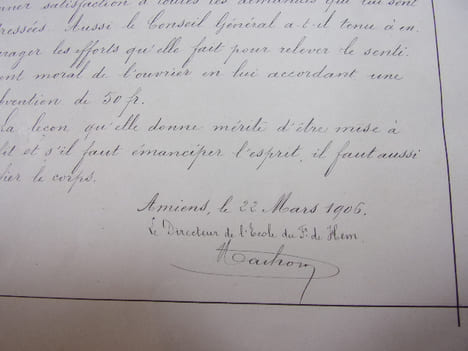 nner satisfaction à toutes les demandes qui lui sont
ressées. Aussi le Conseil Général a-t-il tenu à en-
rager les efforts qu'elle fait pour relever le senti-
ent moral de l'ouvrier en lui accordant une
bvention de 50 fr.
La leçon qu'elle donne mérite d'être mise à
fit et s'il faut émanciper l'esprit, il faut aussi
fier le corps.
Amiens, le 22 Mars 1906.
Le Directeur de l'Ecole du Fg de Hem